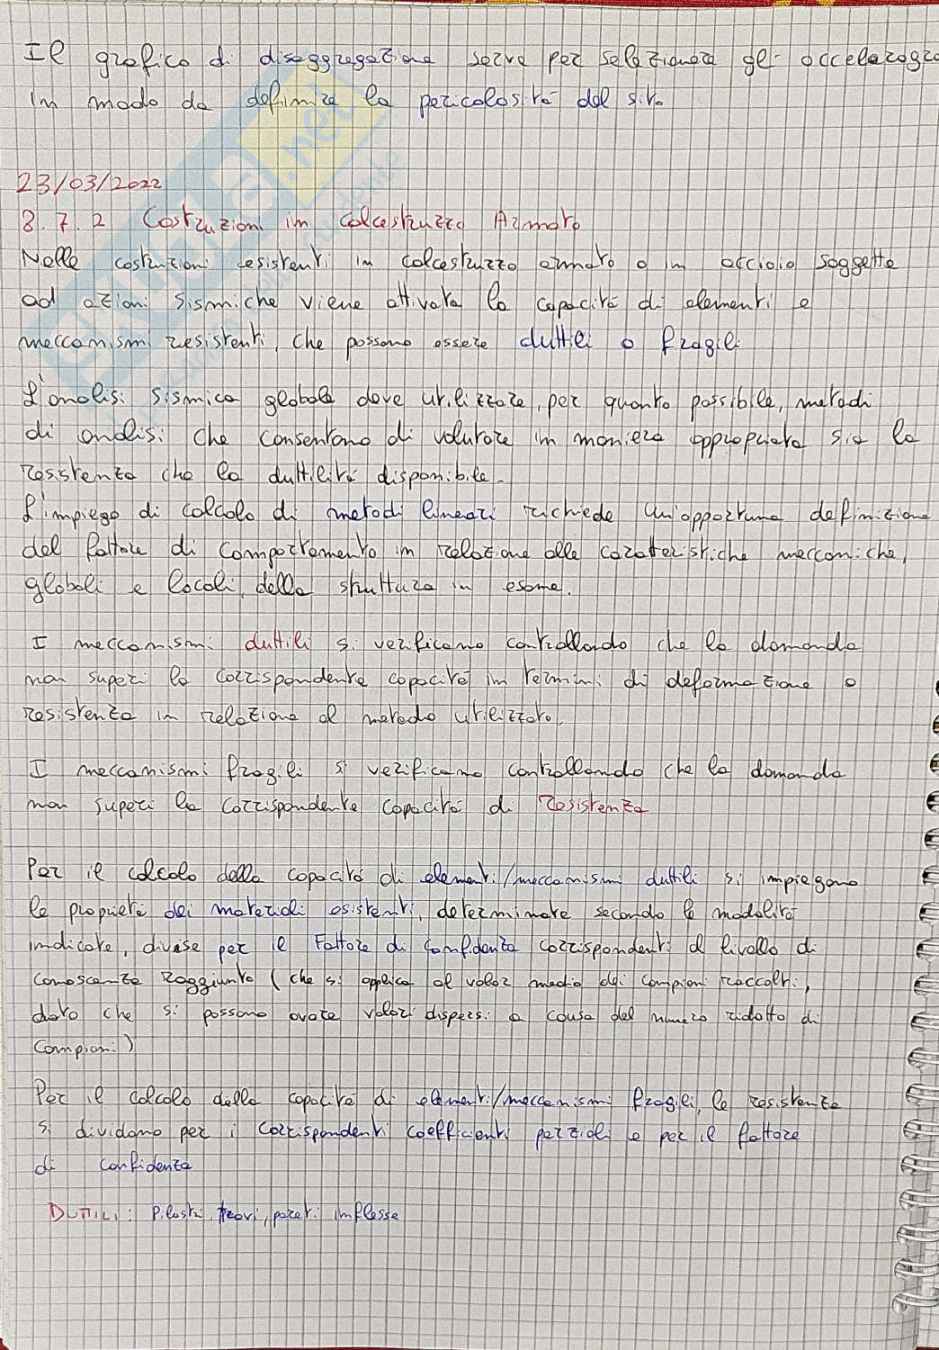 Il grafico di disaggregazione serve per selezionare gli
in modo da definire la pericolosità del sito
23/03/2022
8.7.2 Costruzioni in Calcestruzzo Armato
Nelle costruzioni esistenti in calcestruzzo armato o in acciaio soggette
ad azioni sismiche viene attivata la capacità di elementi e
meccanismi resistenti, che possono essere duttili o fragili
L'analisi sismica globale deve utilizzare, per quanto possibile, metodi
di analisi che consentano di valutare in maniera appropriata sia la
resistenza che la duttilità disponibile.
L'impiego di calcolo di metodi lineari richiede un'opportuna definizione
del fattore di comportamento in relazione alle caratteristiche meccaniche,
globali e locali, della struttura in esame.
I meccanismi duttili si verificano controllando che la domanda
non superi la corrispondente capacità in termini di deformazione o
resistenza in relazione al metodo utilizzato.
I meccanismi fragili si verificano controllando che la domanda
non superi la corrispondente capacità di resistenza
Per il calcolo della capacità di elementi/meccanismi duttili si impiegano
le proprietà dei materiali esistenti, determinate secondo le modalità
indicate, divise per il Fattore di Confidenza corrispondenti al livello di
conoscenza raggiunto (che si applica al valor medio dei campioni raccolti,
dato che si possono avere valori dispersi a causa del numero ridotto di
campioni)
Per il calcolo della capacità di elementi/meccanismi fragili, le resistenze
si dividono per i corrispondenti coefficienti parziali e per il fattore
di confidenza
DUTTILI: Pilastri, travi, pareti inflesse